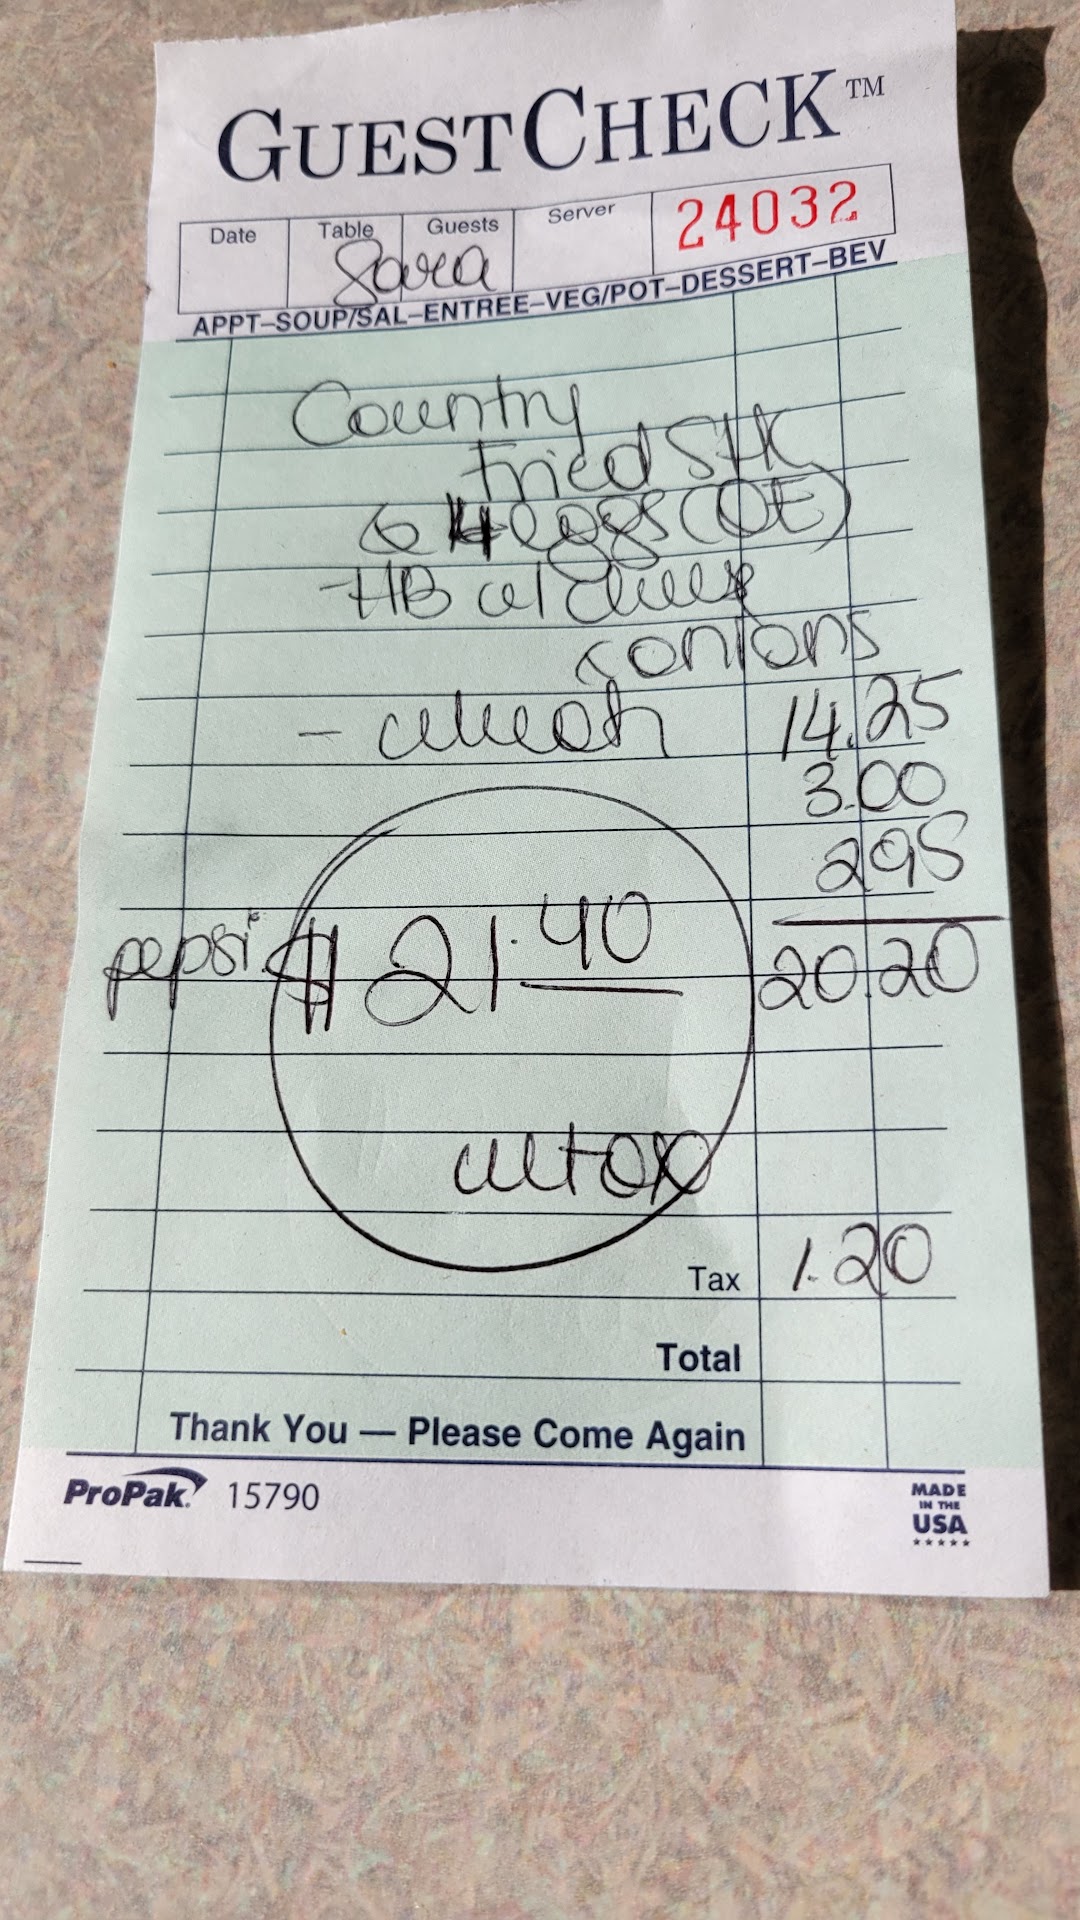 GUESTCHECK™
Date Table Guests Server 24032
Sara
APPT–SOUP/SAL–ENTREE–VEG/POT–DESSERT–BEV
Country
Fried Stk
4 eggs (OE)
-HB w/ chees
onions
- wheat 14.25
3.00
295
pepsi $21.40 20.20
w/tax
Tax 1.20
Total
Thank You — Please Come Again
ProPak. 15790
MADE
IN THE
USA